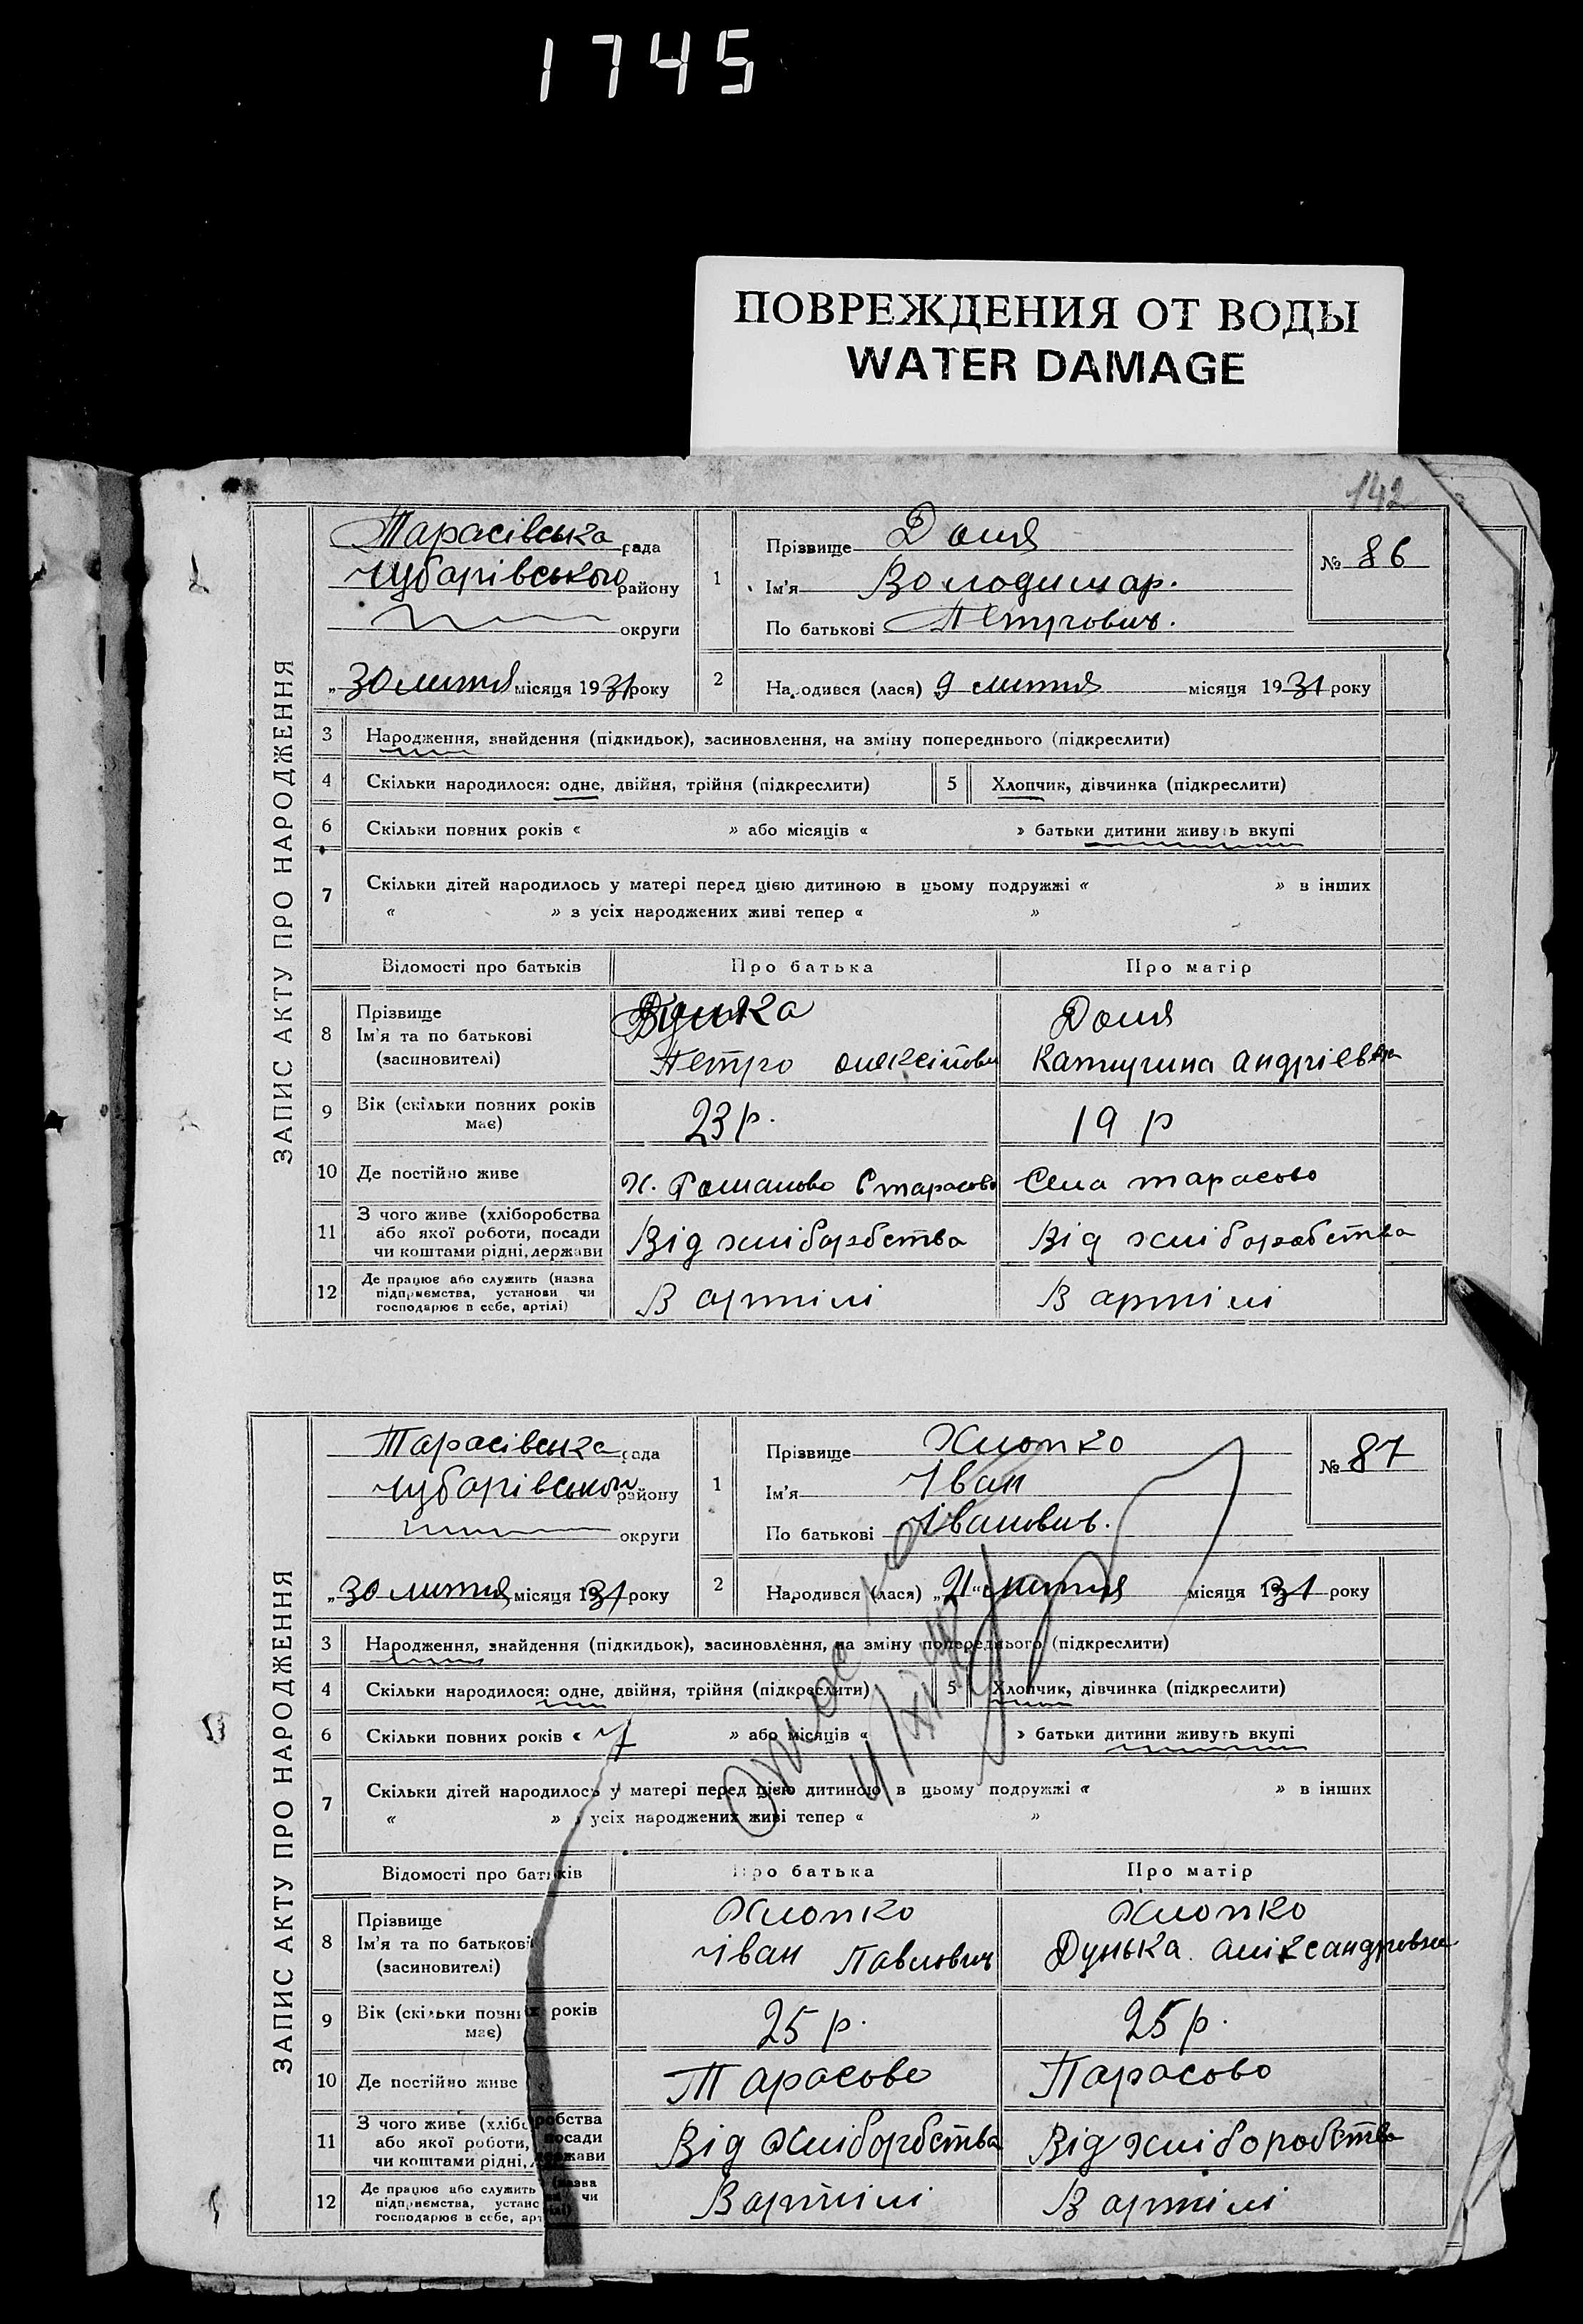 1745
ПОВРЕЖДЕНИЯ ОТ ВОДЫ
WATER DAMAGE
142
ЗАПИС АКТУ ПРО НАРОДЖЕННЯ
Тарасівська рада
Чубарівського району
округи
„30 липня місяця 1931 року
1 Прізвище Доля
Ім'я Володимар.
По батькові Петрович.
№ 86
2 Народився (лася) 9 липня місяця 1931 року
3 Народження, знайдення (підкидьок), засиновлення, на зміну попереднього (підкреслити)
4 Скільки народилося: одне, двійня, трійня (підкреслити) 5 Хлопчик, дівчинка (підкреслити)
6 Скільки повних років « » або місяців « » батьки дитини живуть вкупі
7 Скільки дітей народилось у матері перед цією дитиною в цьому подружжі « » в інших
« » з усіх народжених живі тепер « »
Відомості про батьків Про батька Про матір
8 Прізвище
Ім'я та по батькові
(засиновителі)
Доля
Петро Катирина Андріевна
9 Вік (скільки повних років має) 23 р. 19 р
10 Де постійно живе Х. Романово Старасово Села тарасово
11 З чого живе (хліборобства
або якої роботи, посади
чи коштами рідні, держави
Від хліборбства Від хліборобства
12 Де працює або служить (назва
підприємства, установи чи
господарює в себе, артілі)
В артілі В артілі
ЗАПИС АКТУ ПРО НАРОДЖЕННЯ
Тарасівська рада
Чубарівського району
округи
„30 липня місяця 1931 року
1 Прізвище Хлопко
Ім'я Іван
По батькові Іванович.
№ 87
2 Народився (лася) „21“ липня місяця 1931 року
3 Народження, знайдення (підкидьок), засиновлення, на зміну попереднього (підкреслити)
4 Скільки народилося: одне, двійня, трійня (підкреслити) 5 Хлопчик, дівчинка (підкреслити)
6 Скільки повних років « » або місяців « » батьки дитини живуть вкупі
7 Скільки дітей народилось у матері перед цією дитиною в цьому подружжі « » в інших
« » з усіх народжених живі тепер « »
Відомості про батьків Про батька Про матір
8 Прізвище
Ім'я та по батькові
(засиновителі)
Хлопко Хлопко
Іван Павлович Дунька Аліксандровна
9 Вік (скільки повних років має) 25 р. 25 р.
10 Де постійно живе Тарасово Тарасово
11 З чого живе (хліборобства
або якої роботи, посади
чи коштами рідні, держави
Від хліборбства Від хліборобства
12 Де працює або служить (назва
підприємства, установи чи
господарює в себе, артілі)
В артілі В артілі